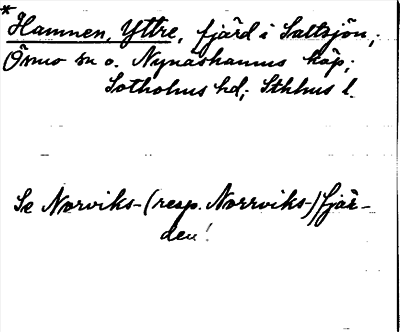 *
Hamnen, Yttre, fjärd i Saltsjön,;
Ösmo sn o. Nynäshamns köp;
Sotholms hd; Sthlms l.
Se Norviks-(resp. Norrviks-)fjär-
den!